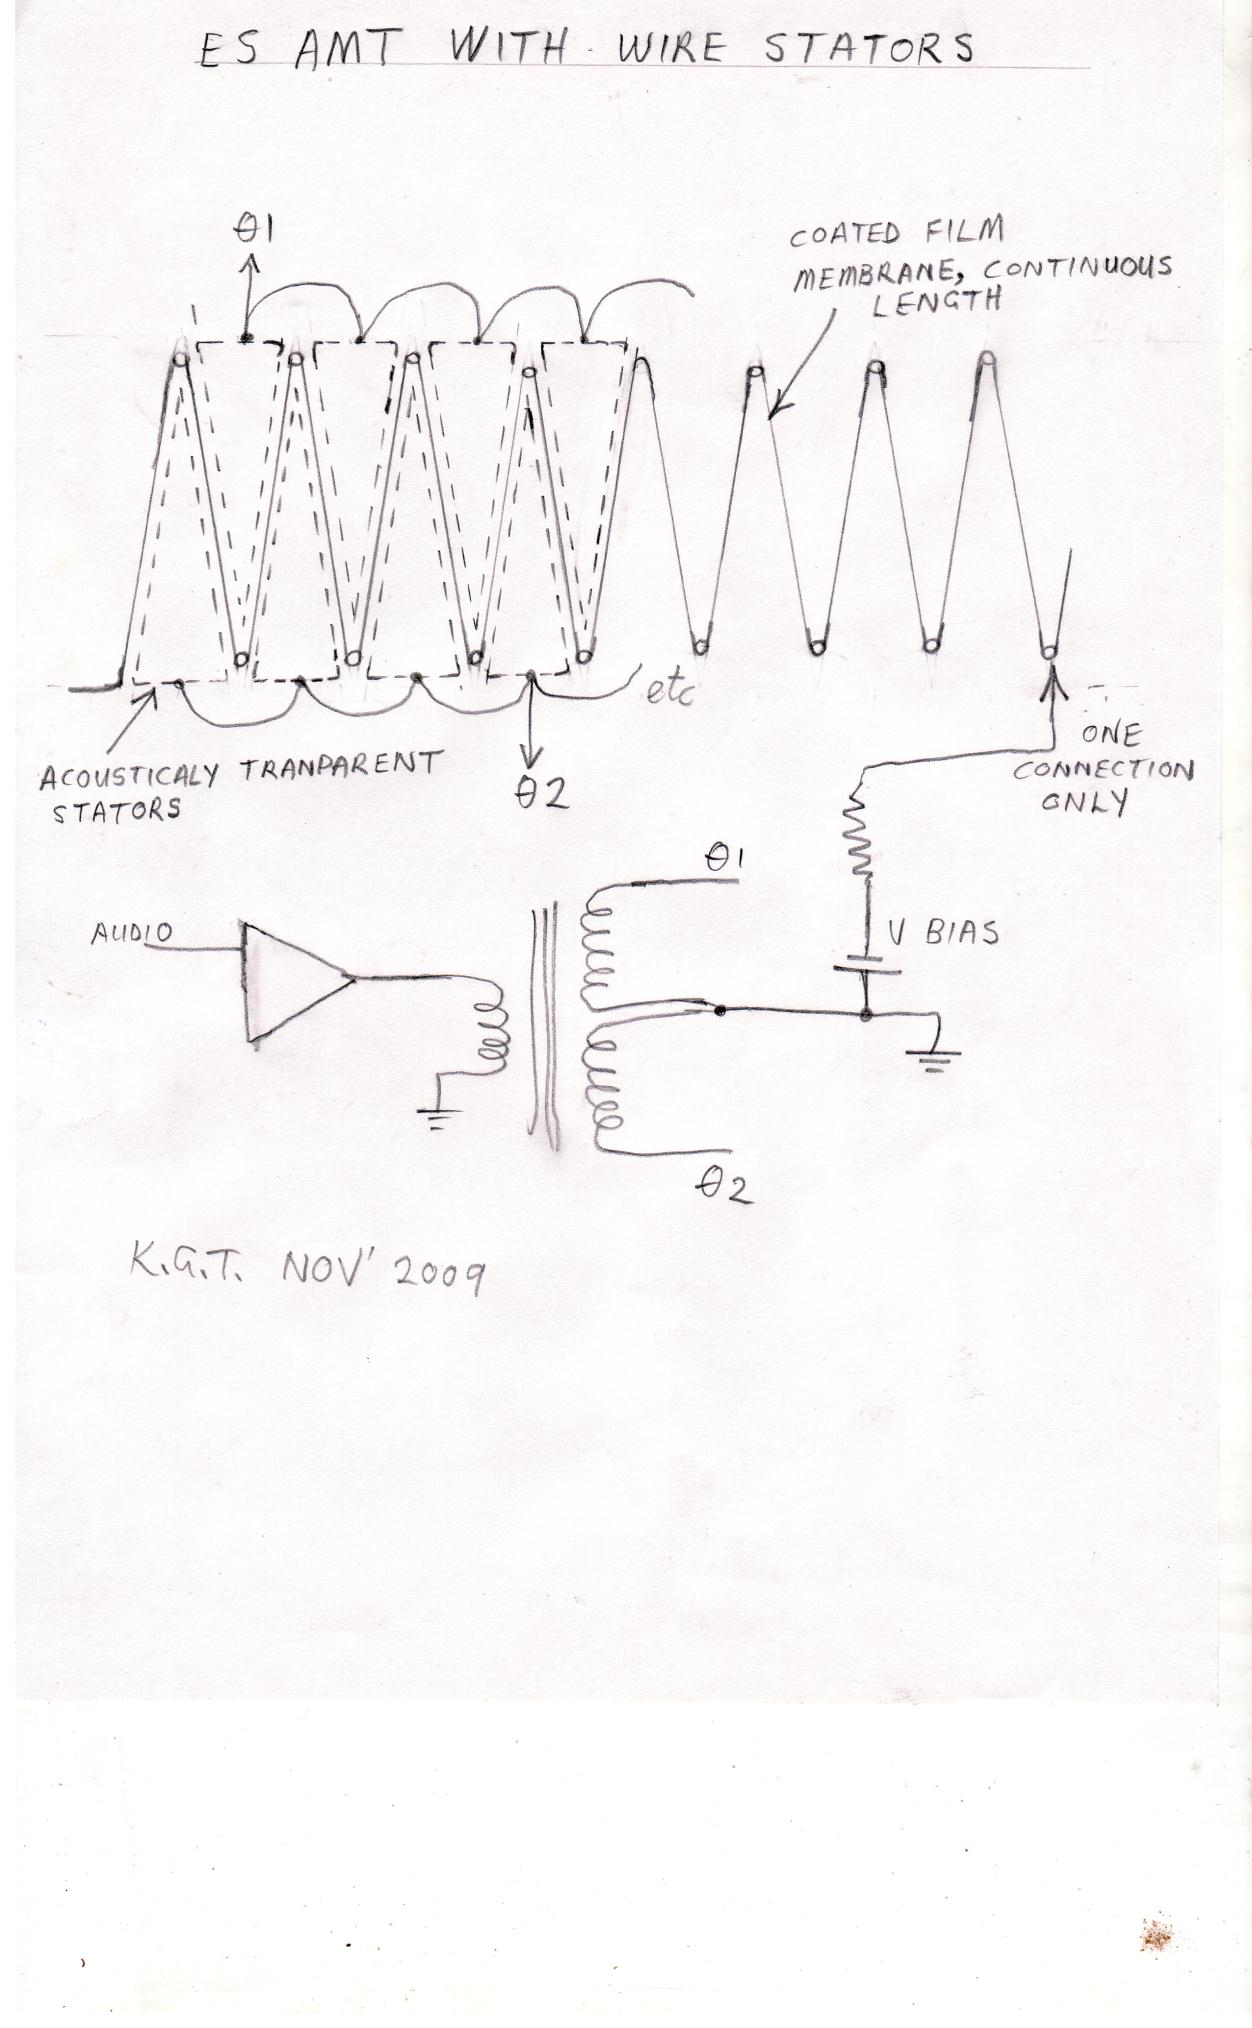 ES AMT WITH WIRE STATORS
θ1
COATED FILM
MEMBRANE, CONTINUOUS
LENGTH
etc
ACOUSTICALY TRANPARENT
STATORS
θ2
ONE
CONNECTION
ONLY
θ1
AUDIO
V BIAS
θ2
K.G.T. NOV' 2009